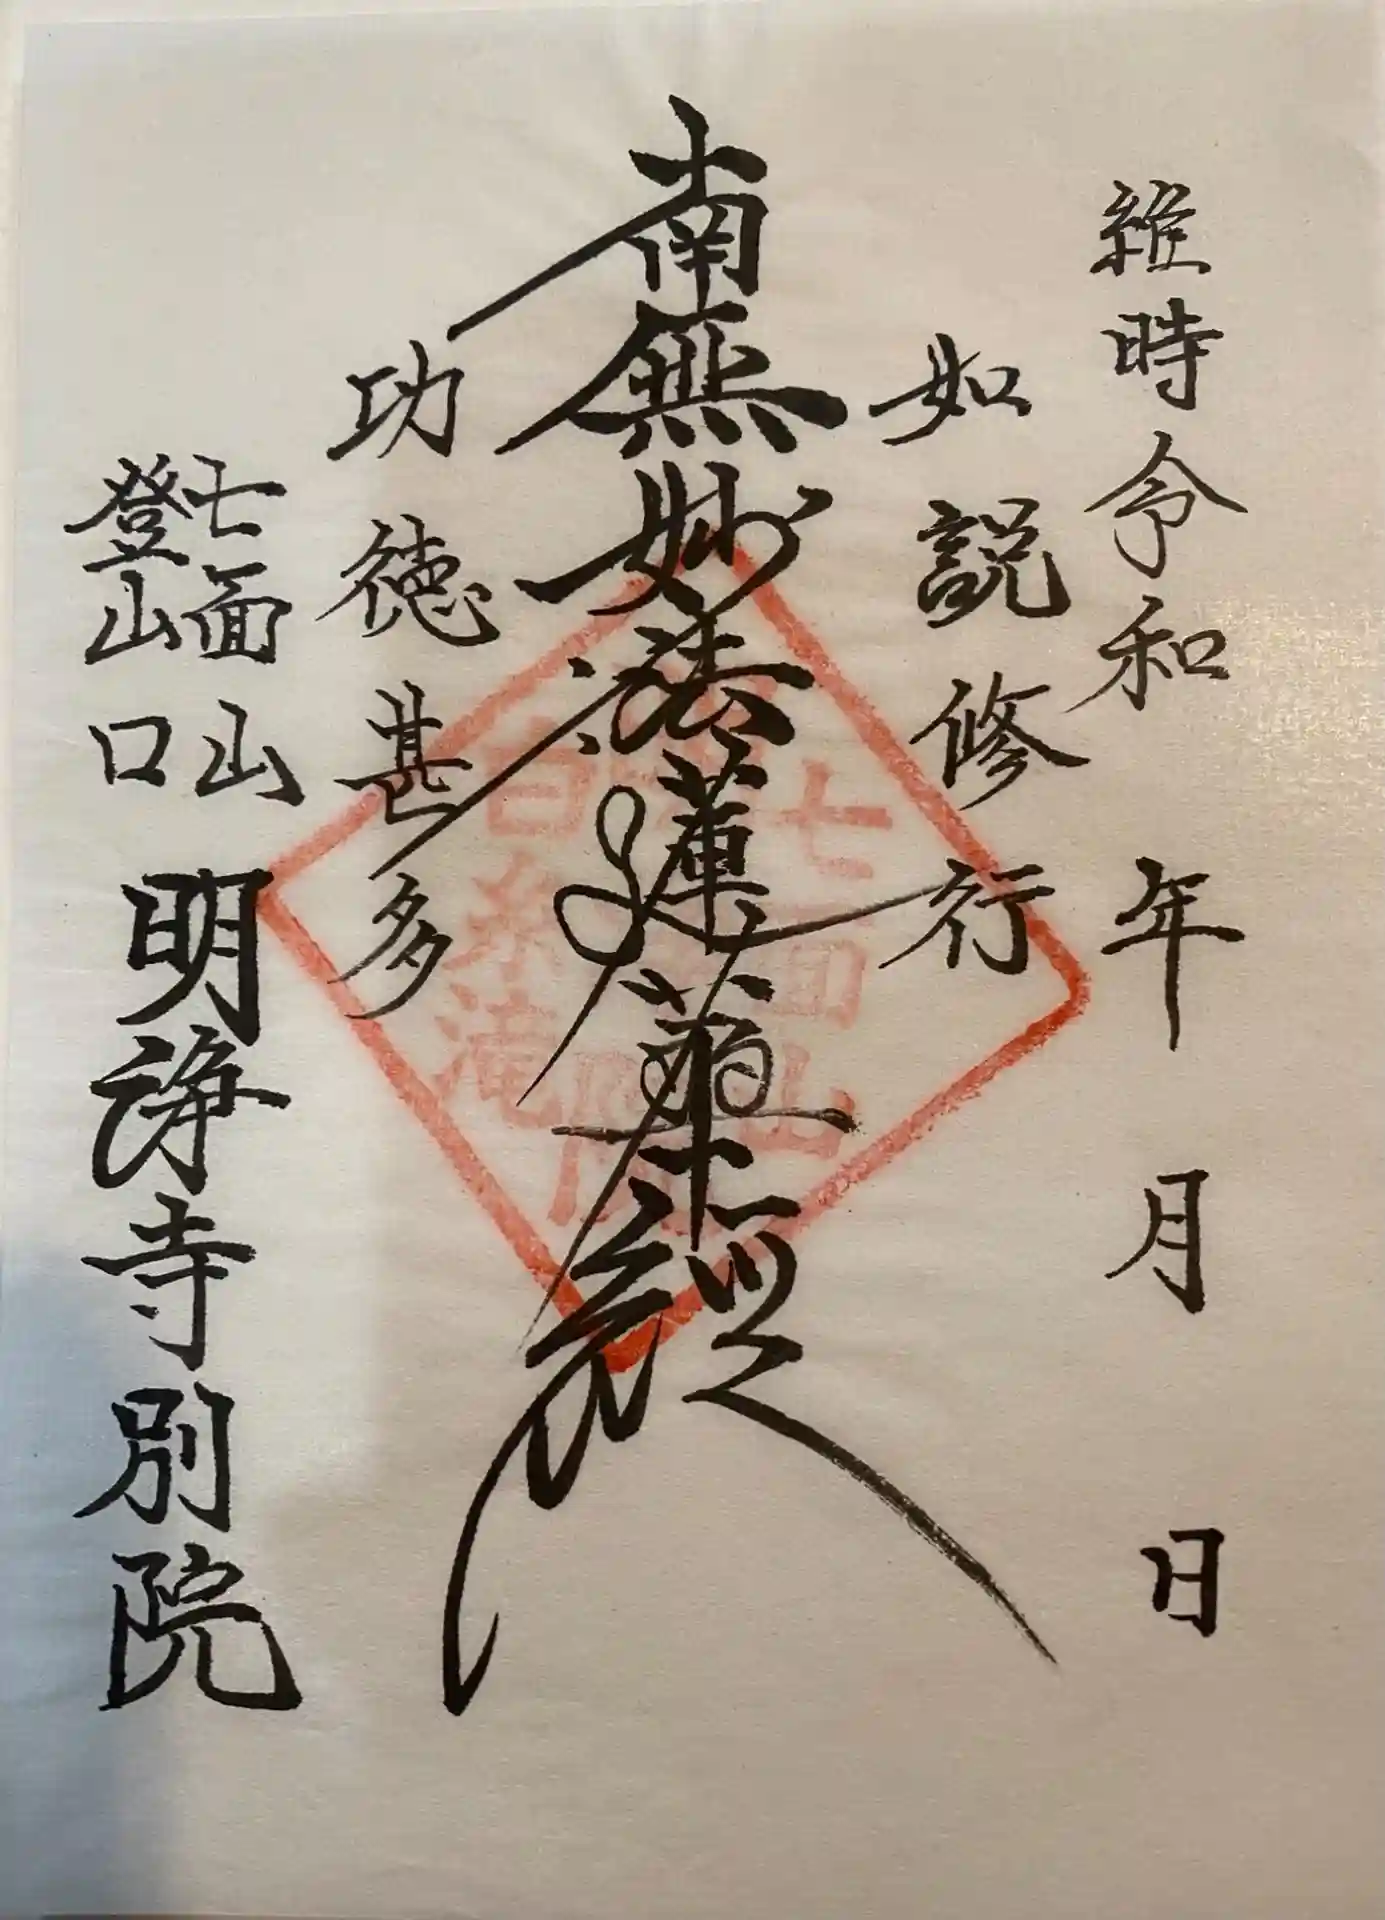 維時令和 年 月 日
如説修行
南無妙法蓮華経
功徳甚多
七面山
登山口
明浄寺別院
七面山
白糸滝